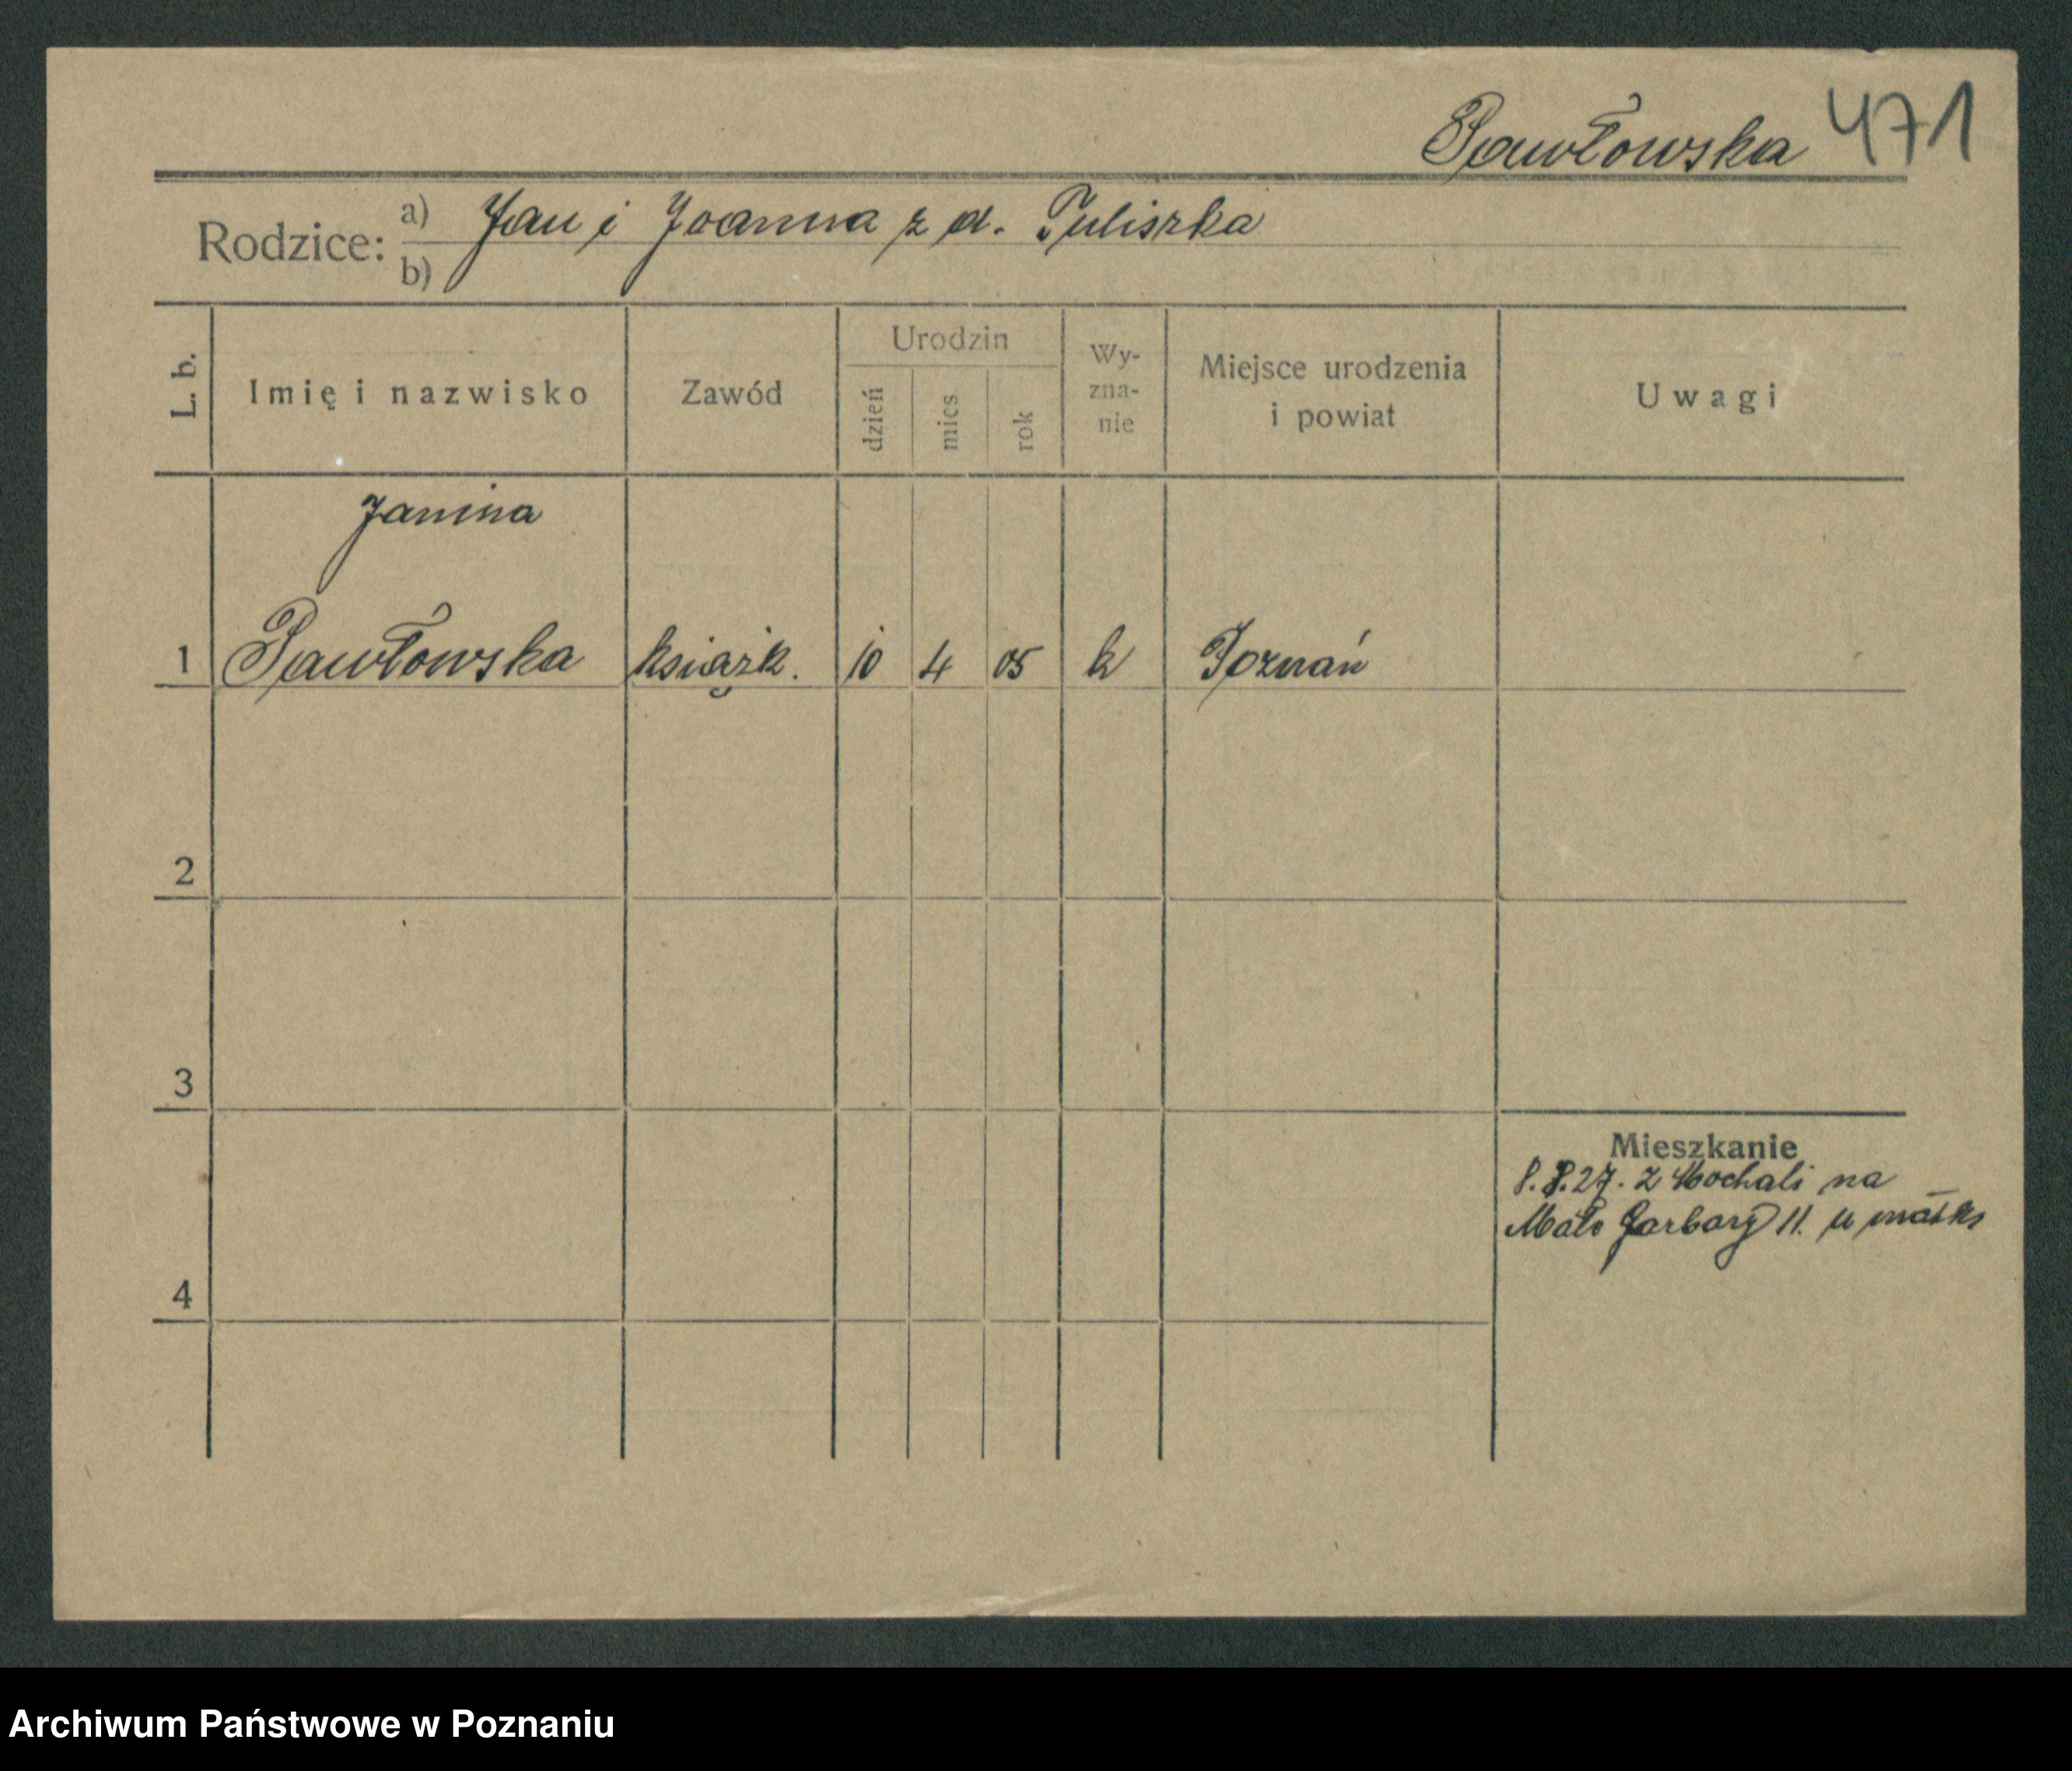 Pawłowska 471
Rodzice: a) Jan i Joanna z d. Puliszka
b)
L. b.
Imię i nazwisko
Zawód
Urodzin
dzień
mies
rok
Wy-
zna-
nie
Miejsce urodzenia
i powiat
Uwagi
Janina
1 Pawłowska książk. 10 4 05 k Poznań
2
3
4
Mieszkanie
8.8.27. z Mochali na
Małe Garbary 11. u matki
Archiwum Państwowe w Poznaniu